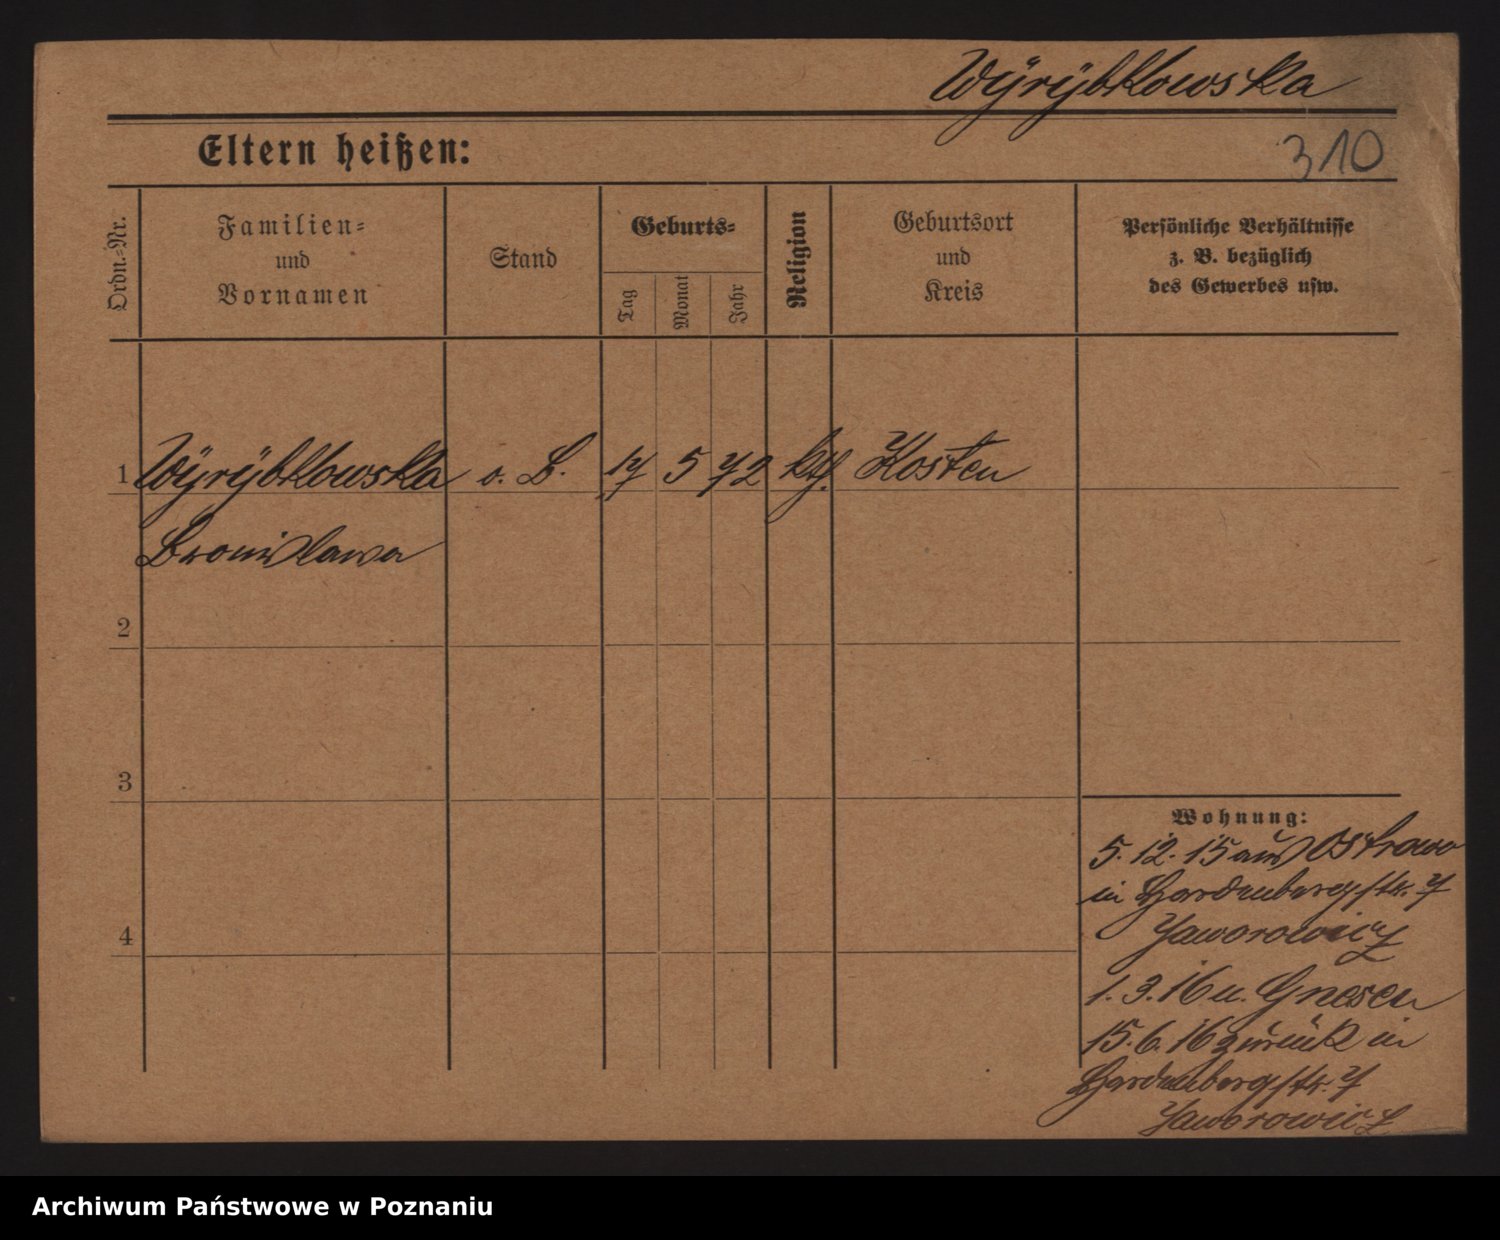 Wyrybkowska
Eltern heißen:
310
Ordn.-Nr.
Familien-
und
Vornamen
Stand
Geburts-
Tag
Monat
Jahr
Religion
Geburtsort
und
Kreis
Persönliche Verhältnisse
z. B. bezüglich
des Gewerbes usw.
1 Wyrybkowska o. B. 17 5 72 kth. Kosten
Bronislawa
2
3
4
Wohnung:
5. 12. 15 aus Ostrowo
in Hardenbergstr. 7
Jaworowicz
1. 3. 16 n. Gnesen
15. 6. 16 zurück in
Hardenbergstr. 7
Jaworowicz
Archiwum Państwowe w Poznaniu